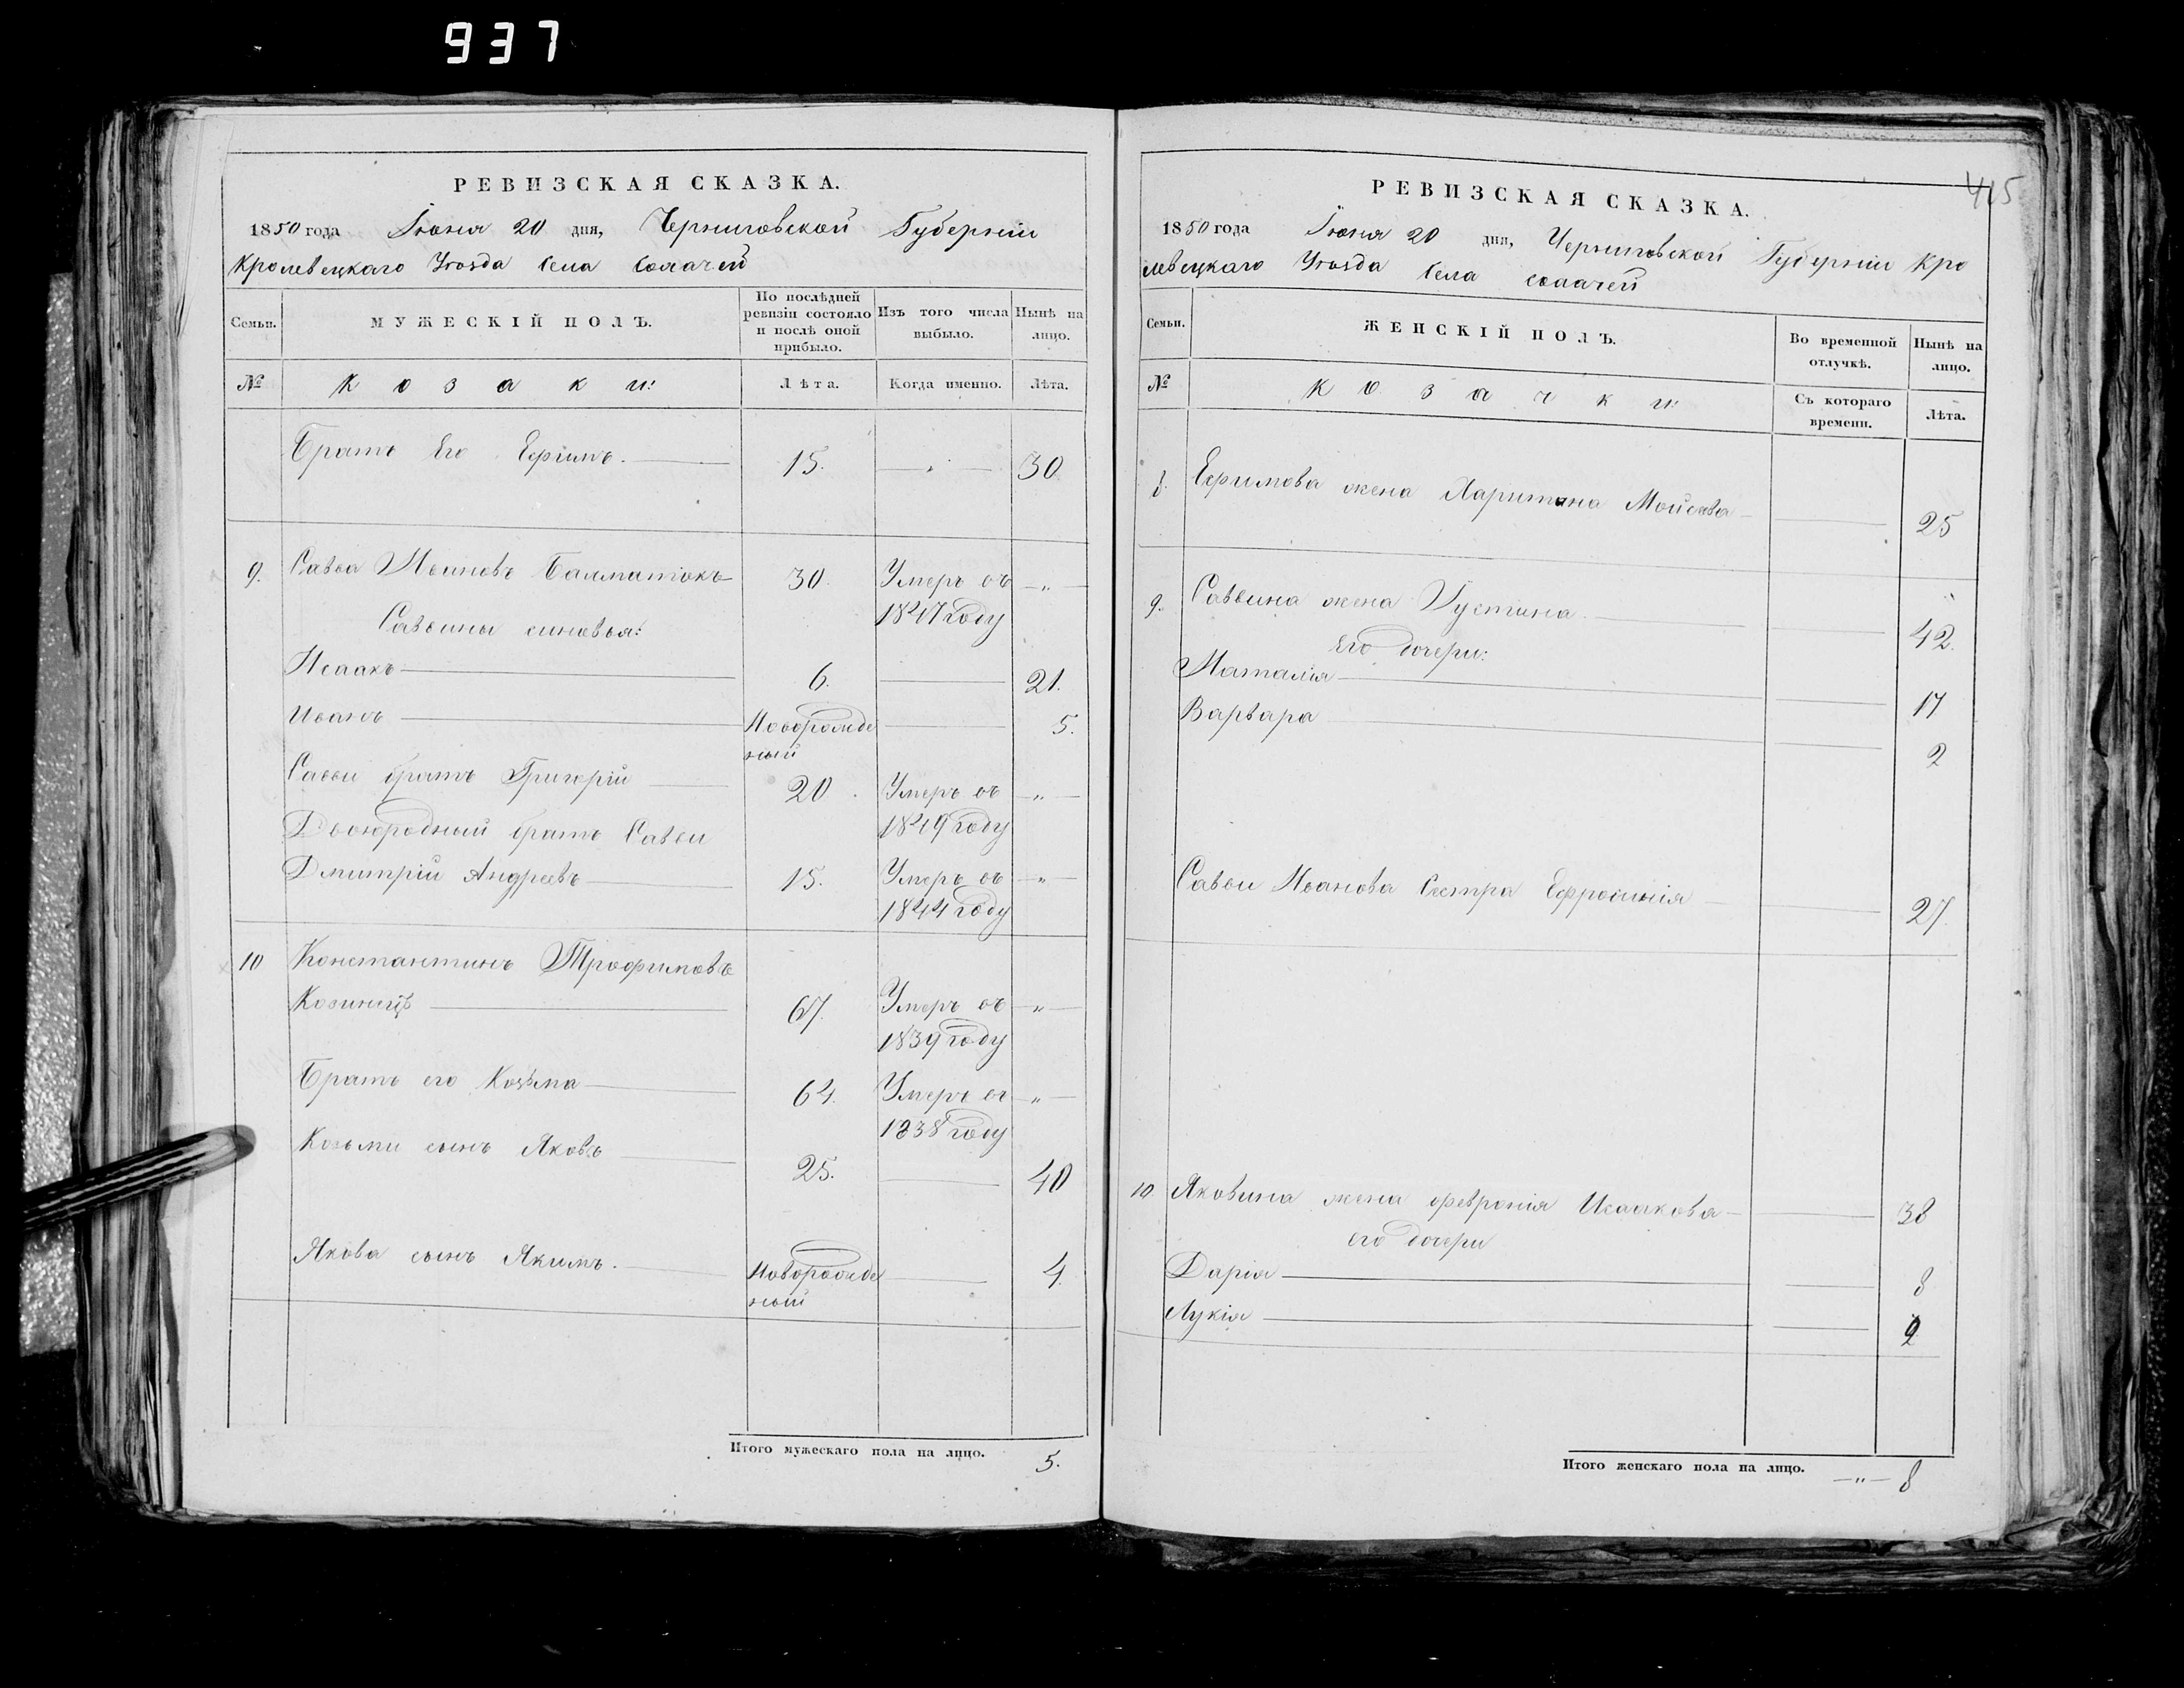 937
РЕВИЗСКАЯ СКАЗКА.
1850 года Іюня 20 дня, Черниговской Губерніи
Кролевецкаго Уѣзда Села
Семьи.
МУЖЕСКІЙ ПОЛЪ.
По послѣдней ревизіи состояло и послѣ оной прибыло.
Изъ того числа выбыло.
Нынѣ на лицо.
№
Козаки:
Лѣта.
Когда именно.
Лѣта.
Братъ Его Ефімъ. 15. — „ — 30
9. Савва Ивановъ 30. Умеръ въ — „ —
Саввины синовья: 1847 году
Исаакъ 6. 21.
Иванъ Новорожде 5.
ный
Саввы братъ Григорій 20. Умеръ въ — „ —
Двоюродный братъ Саввы 1849 году
Дмитрій Андреевъ 15. Умеръ въ — „ —
1844 году
10 Константинъ Трофимовъ
67. Умеръ въ — „ —
1839 году
Братъ его Козьма 64. Умеръ въ — „ —
1838 году
Козьмы сынъ Яковъ 25. 40
Якова сынъ Якимъ. Новорожде 4.
ный
Итого мужескаго пола на лицо. 5.
415
РЕВИЗСКАЯ СКАЗКА.
1850 года Іюня 20 дня, Черниговской Губерніи Кро
левецкаго Уѣзда Села
Семьи.
ЖЕНСКІЙ ПОЛЪ.
Во временной отлучкѣ.
Нынѣ на лицо.
№
Козачки:
Съ котораго времени.
Лѣта.
8. Ефимова жена Харитина Мойсеева 25
9. Саввина жена Густина 42.
Его дочери:
Наталія 17
Варвара 2
Саввы Иванова Сестра Ефросинія 27.
10. Яковина жена Февронія Исаакова 38
его дочери
Дарія 8
Лукія 2
Итого женскаго пола на лицо. — „ — 8